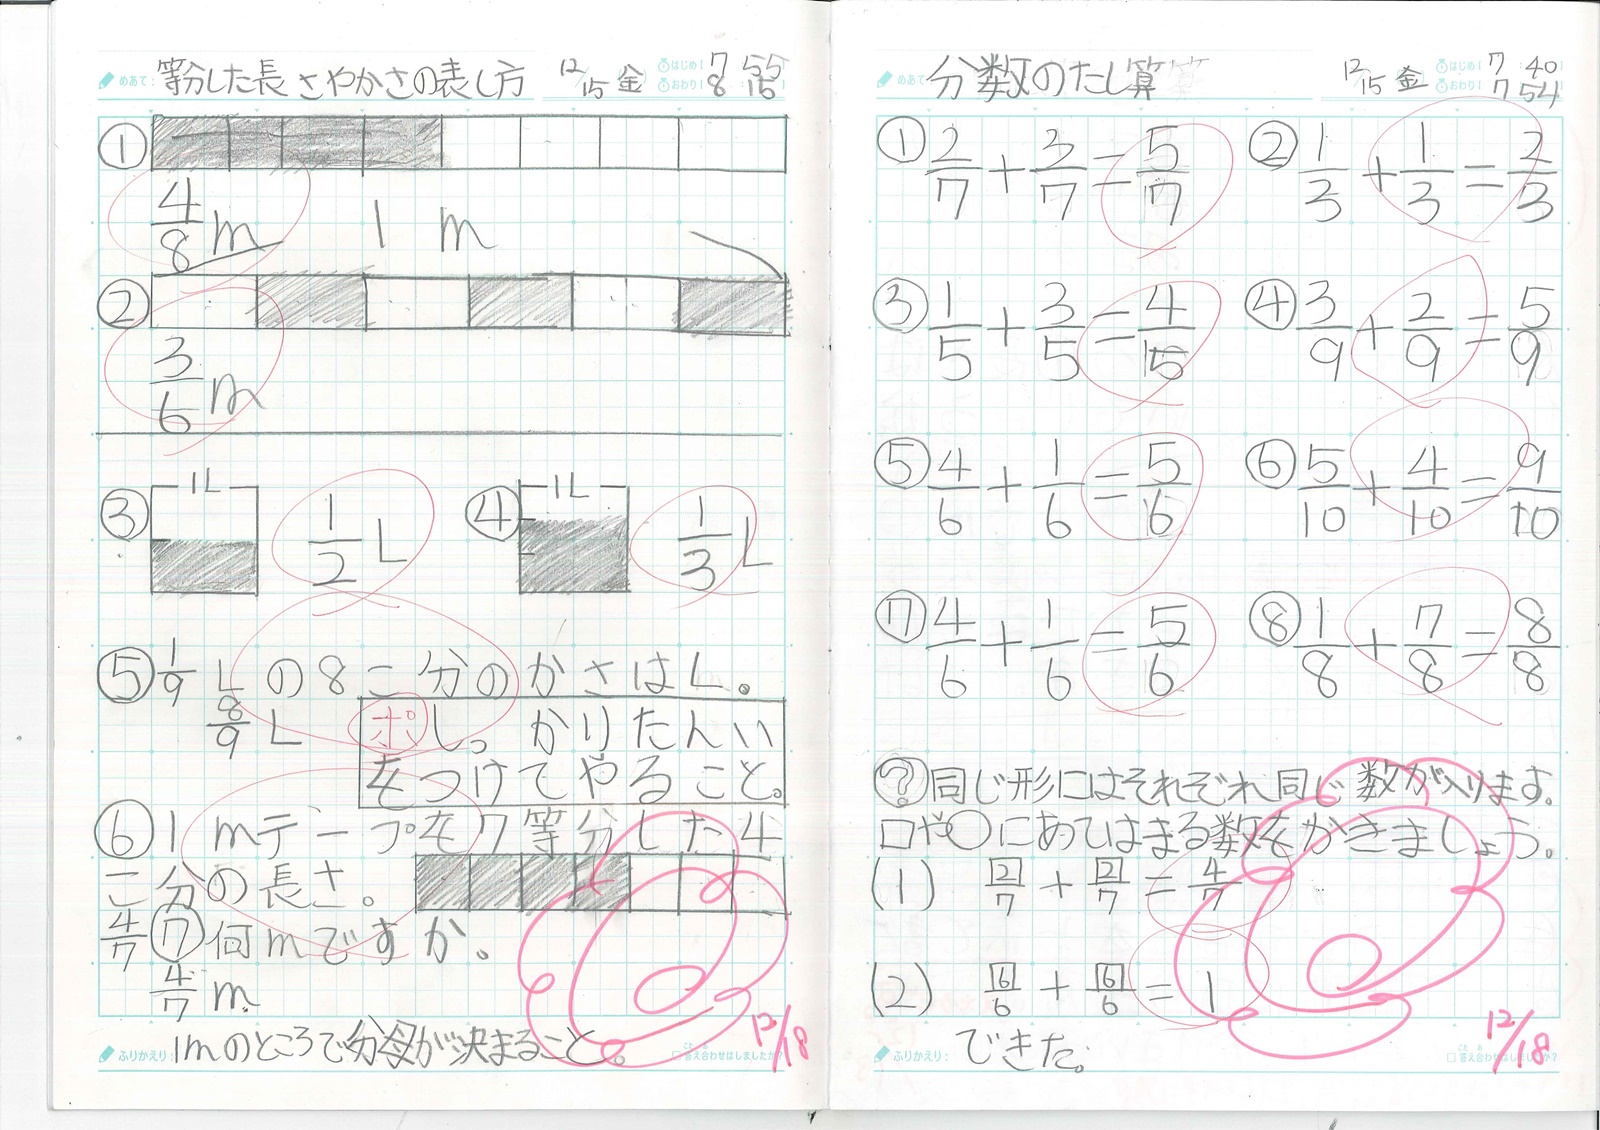 めあて: 等分した長さやかさの表し方 12/15 金 はじめ! 7 55
おわり! 8 16
① 
4/8 m 1 m
②
3/6 m
③ 1L 1/2 L ④ 1L 1/3 L
⑤ 1/9 Lの8こ分のかさはL。
8/9 L ポ しっかりたんい
をつけてやること。
⑥ 1mテープを7等分した4
こ分の長さ。
4/7 ⑦ 何mですか。
4/7 m
ふりかえり: 1mのところで分母が決まること。
答え合わせはしましたか?
12/18
めあて: 分数のたし算 12/15 金 はじめ! 7 40
おわり! 7 54
① 2/7 + 3/7 = 5/7 ② 1/3 + 1/3 = 2/3
③ 1/5 + 3/5 = 4/15 ④ 3/9 + 2/9 = 5/9
⑤ 4/6 + 1/6 = 5/6 ⑥ 5/10 + 4/10 = 9/10
⑦ 4/6 + 1/6 = 5/6 ⑧ 1/8 + 7/8 = 8/8
? 同じ形にはそれぞれ同じ数が入ります。
□や○にあてはまる数をかきましょう。
(1) 2/7 + 2/7 = 4/7
(2) 6/6 + 6/6 = 1
ふりかえり: できた。
答え合わせはしましたか?
12/18